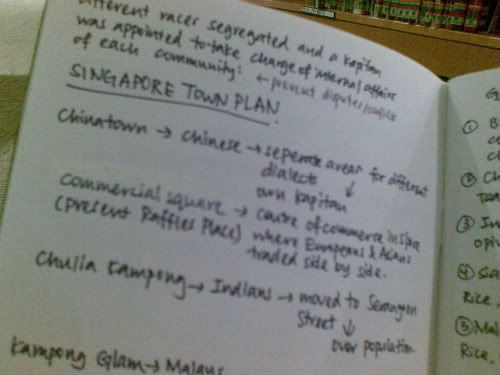 different races segregated and a kapitan
was appointed to take charge of internal affairs
of each community: ← prevent disputes/conflicts
SINGAPORE TOWN PLAN
Chinatown → Chinese → seperate areas for different
dialects
↓
own kapitan
commercial square → centre of commerce in S'pore
(present Raffles Place) where Europeans & Asians
traded side by side.
Chulia Kampong → Indians → moved to Serangoon
Street
↓
over population
Kampong Glam → Malays
①
②
③
④
Rice
⑤
Rice.